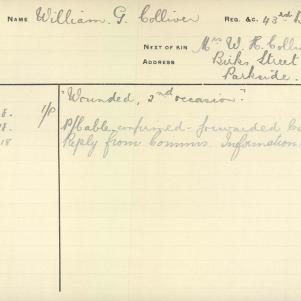 NAME William. G. Colliver REG. &C. 43rd B
NEXT OF KIN Mrs W. H. Colli
ADDRESS Birks Street
Parkside.
"Wounded, 2nd occasion"
8. 1/P P/Cable confirmed - forwarded
18.
18 Reply from Comms. Information